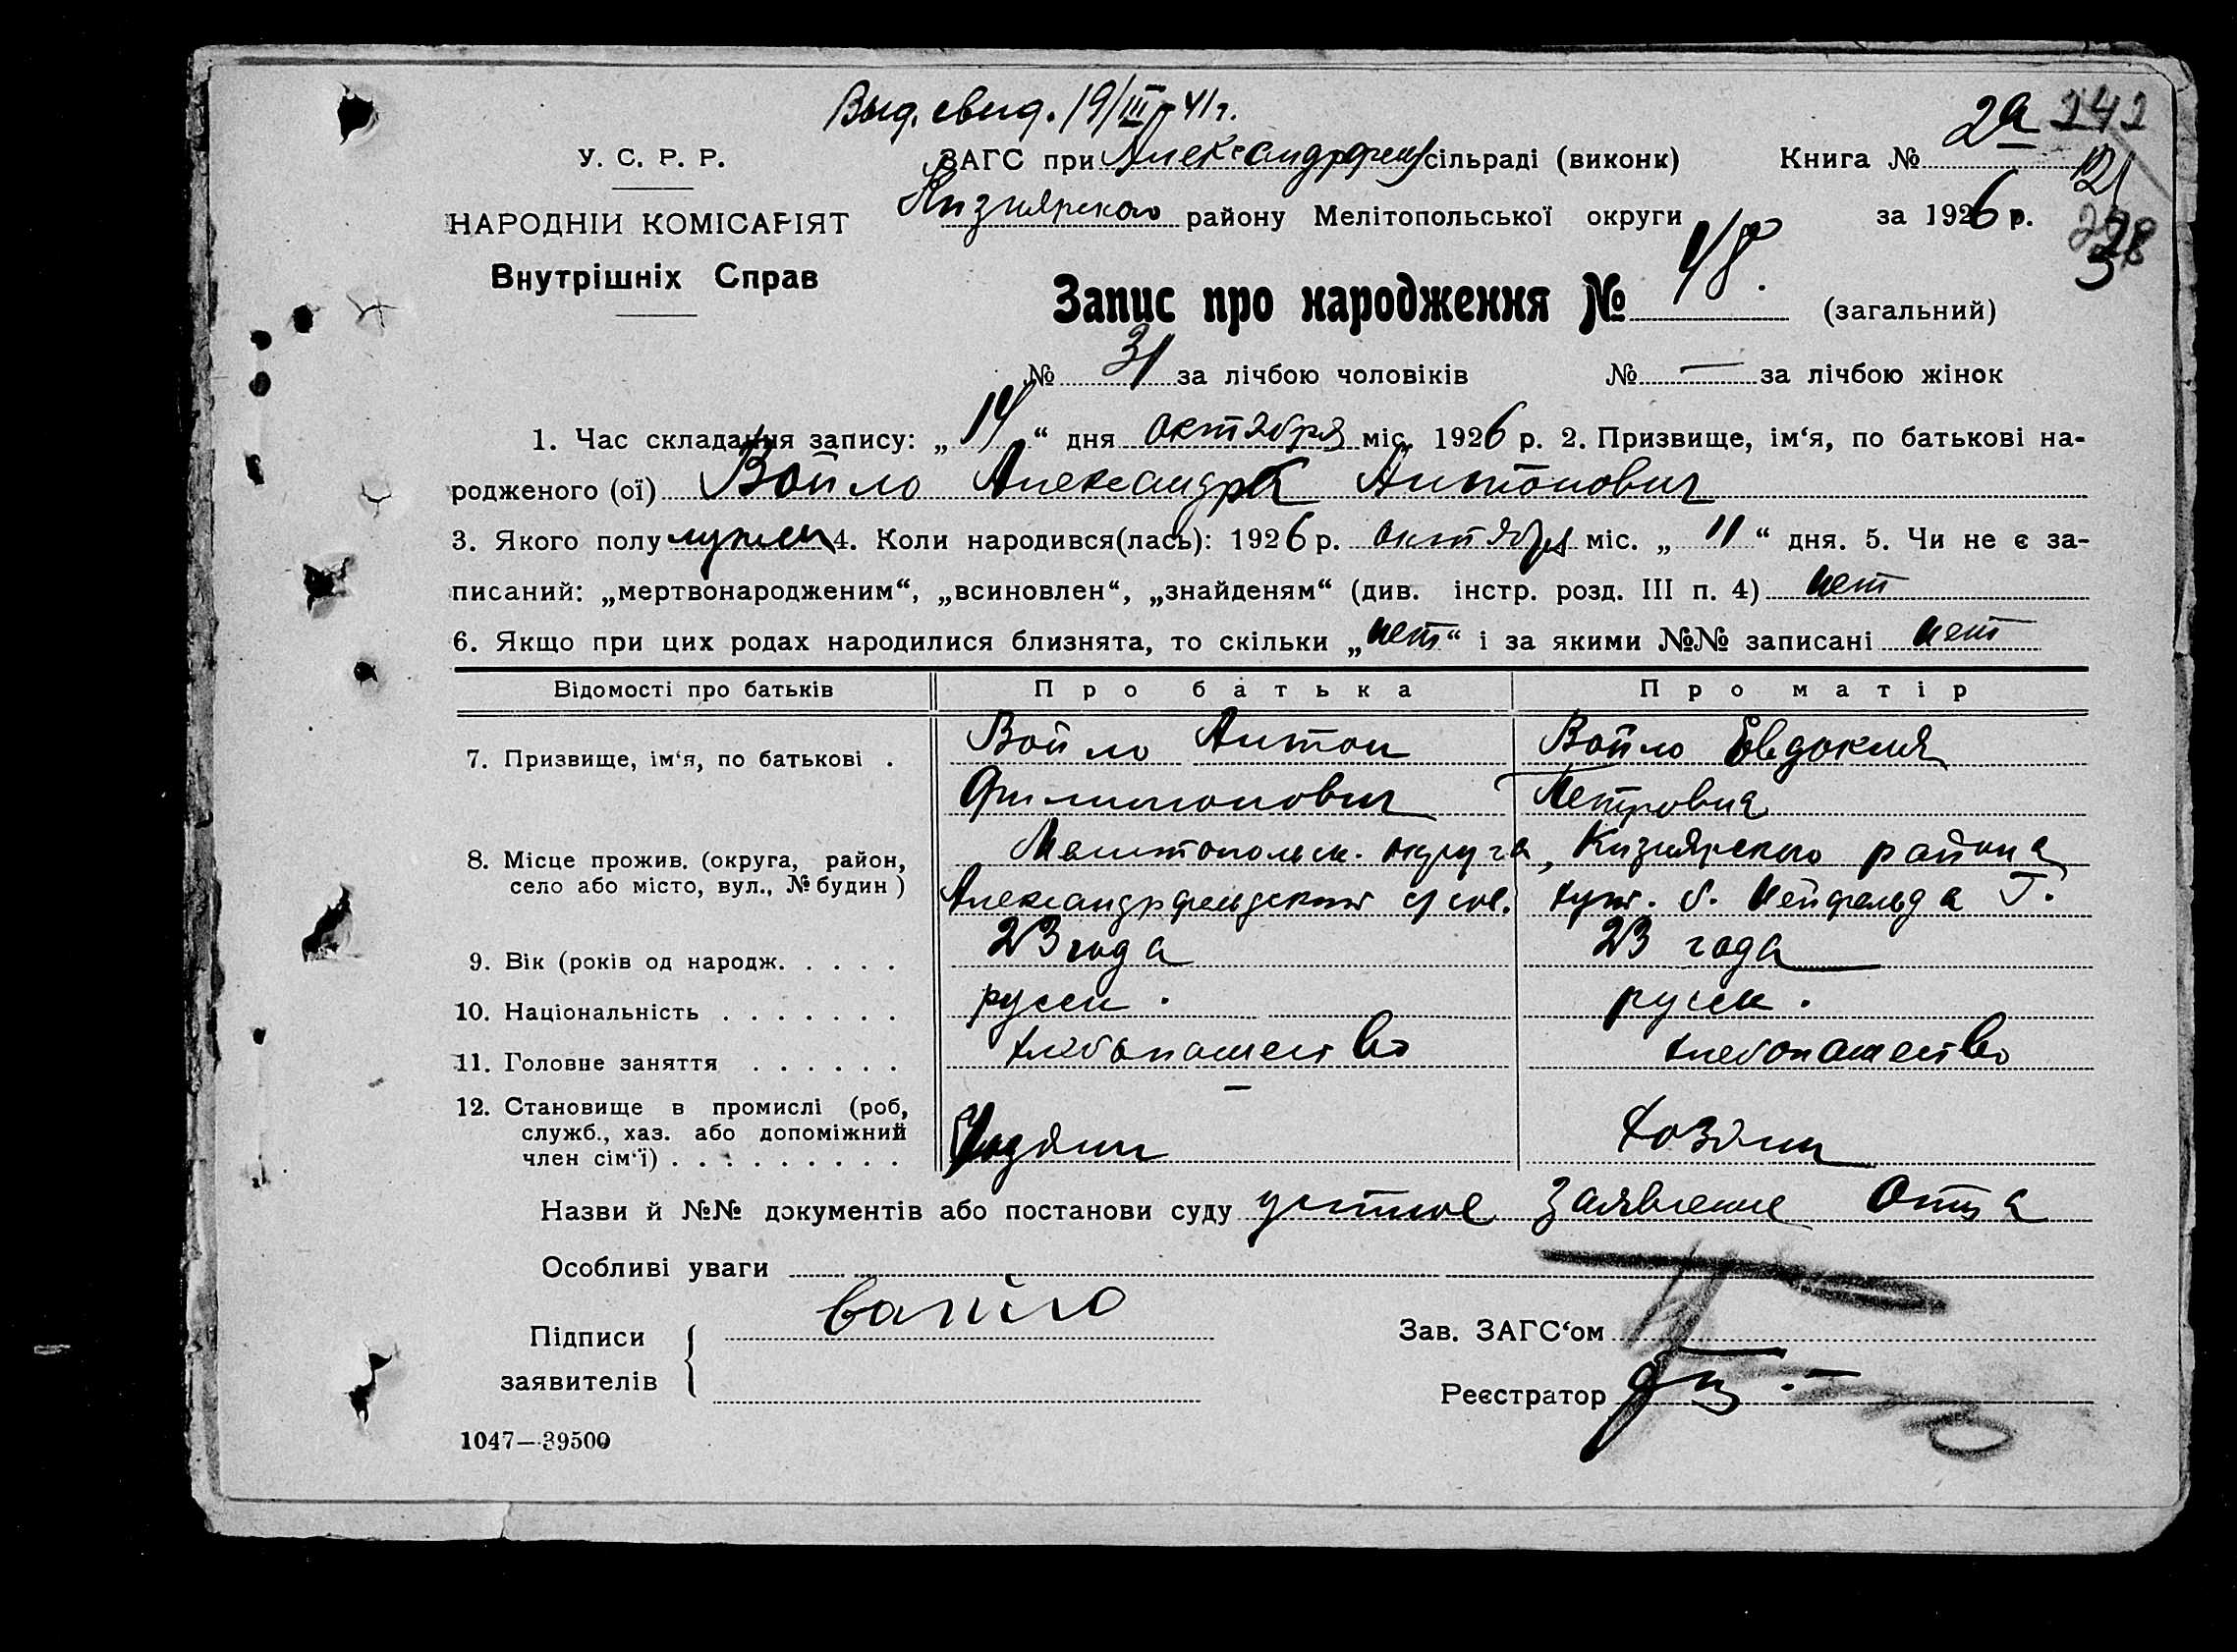 Выд. свид. 19/III 41 г.
У. С. Р. Р.
ЗАГС при Александрфельд сільраді (виконк) Книга № 2а 242
121
НАРОДНІЙ КОМІСАРІЯТ
Кизиярского району Мелітопольської округи за 1926 р.
Внутрішніх Справ
Запис про народження № 48. (загальний)
№ 31 за лічбою чоловіків № — за лічбою жінок
1. Час складання запису: „14“ дня октября міс. 1926 р. 2. Призвище, ім‘я, по батькові на-
родженого (ої) Войло Александра Антонович
3. Якого полу мужск 4. Коли народився(лась): 1926 р. октября міс. „11“ дня. 5. Чи не є за-
писаний: „мертвонародженим“, „всиновлен“, „знайденям“ (див. інстр. розд. III п. 4) нет
6. Якщо при цих родах народилися близнята, то скільки „нет“ і за якими №№ записані нет
Відомості про батьків Про батька Про матір
7. Призвище, ім‘я, по батькові . Войло Антон Войло Евдокия
Филимонович Петровна
8. Місце прожив. (округа, район, Мелитопольск. округа, Кизиярского района
село або місто, вул., № будин ) Александрфельдский с/сов. хут. б. Нейфельда Г.
9. Вік (років од народж. . . . . 23 года 23 года
10. Національність . . . . . . . русск. русск.
11. Головне заняття . . . . . . хлебопашество хлебопашество
12. Становище в промислі (роб, —
служб., хаз. або допоміжний Хозяин Хозяин
член сім‘ї) . . . . . . . . .
Назви й №№ документів або постанови суду устное заявление отца
Особливі уваги
Підписи Вайло
заявителів
Зав. ЗАГС‘ом
Реєстратор
1047—39500